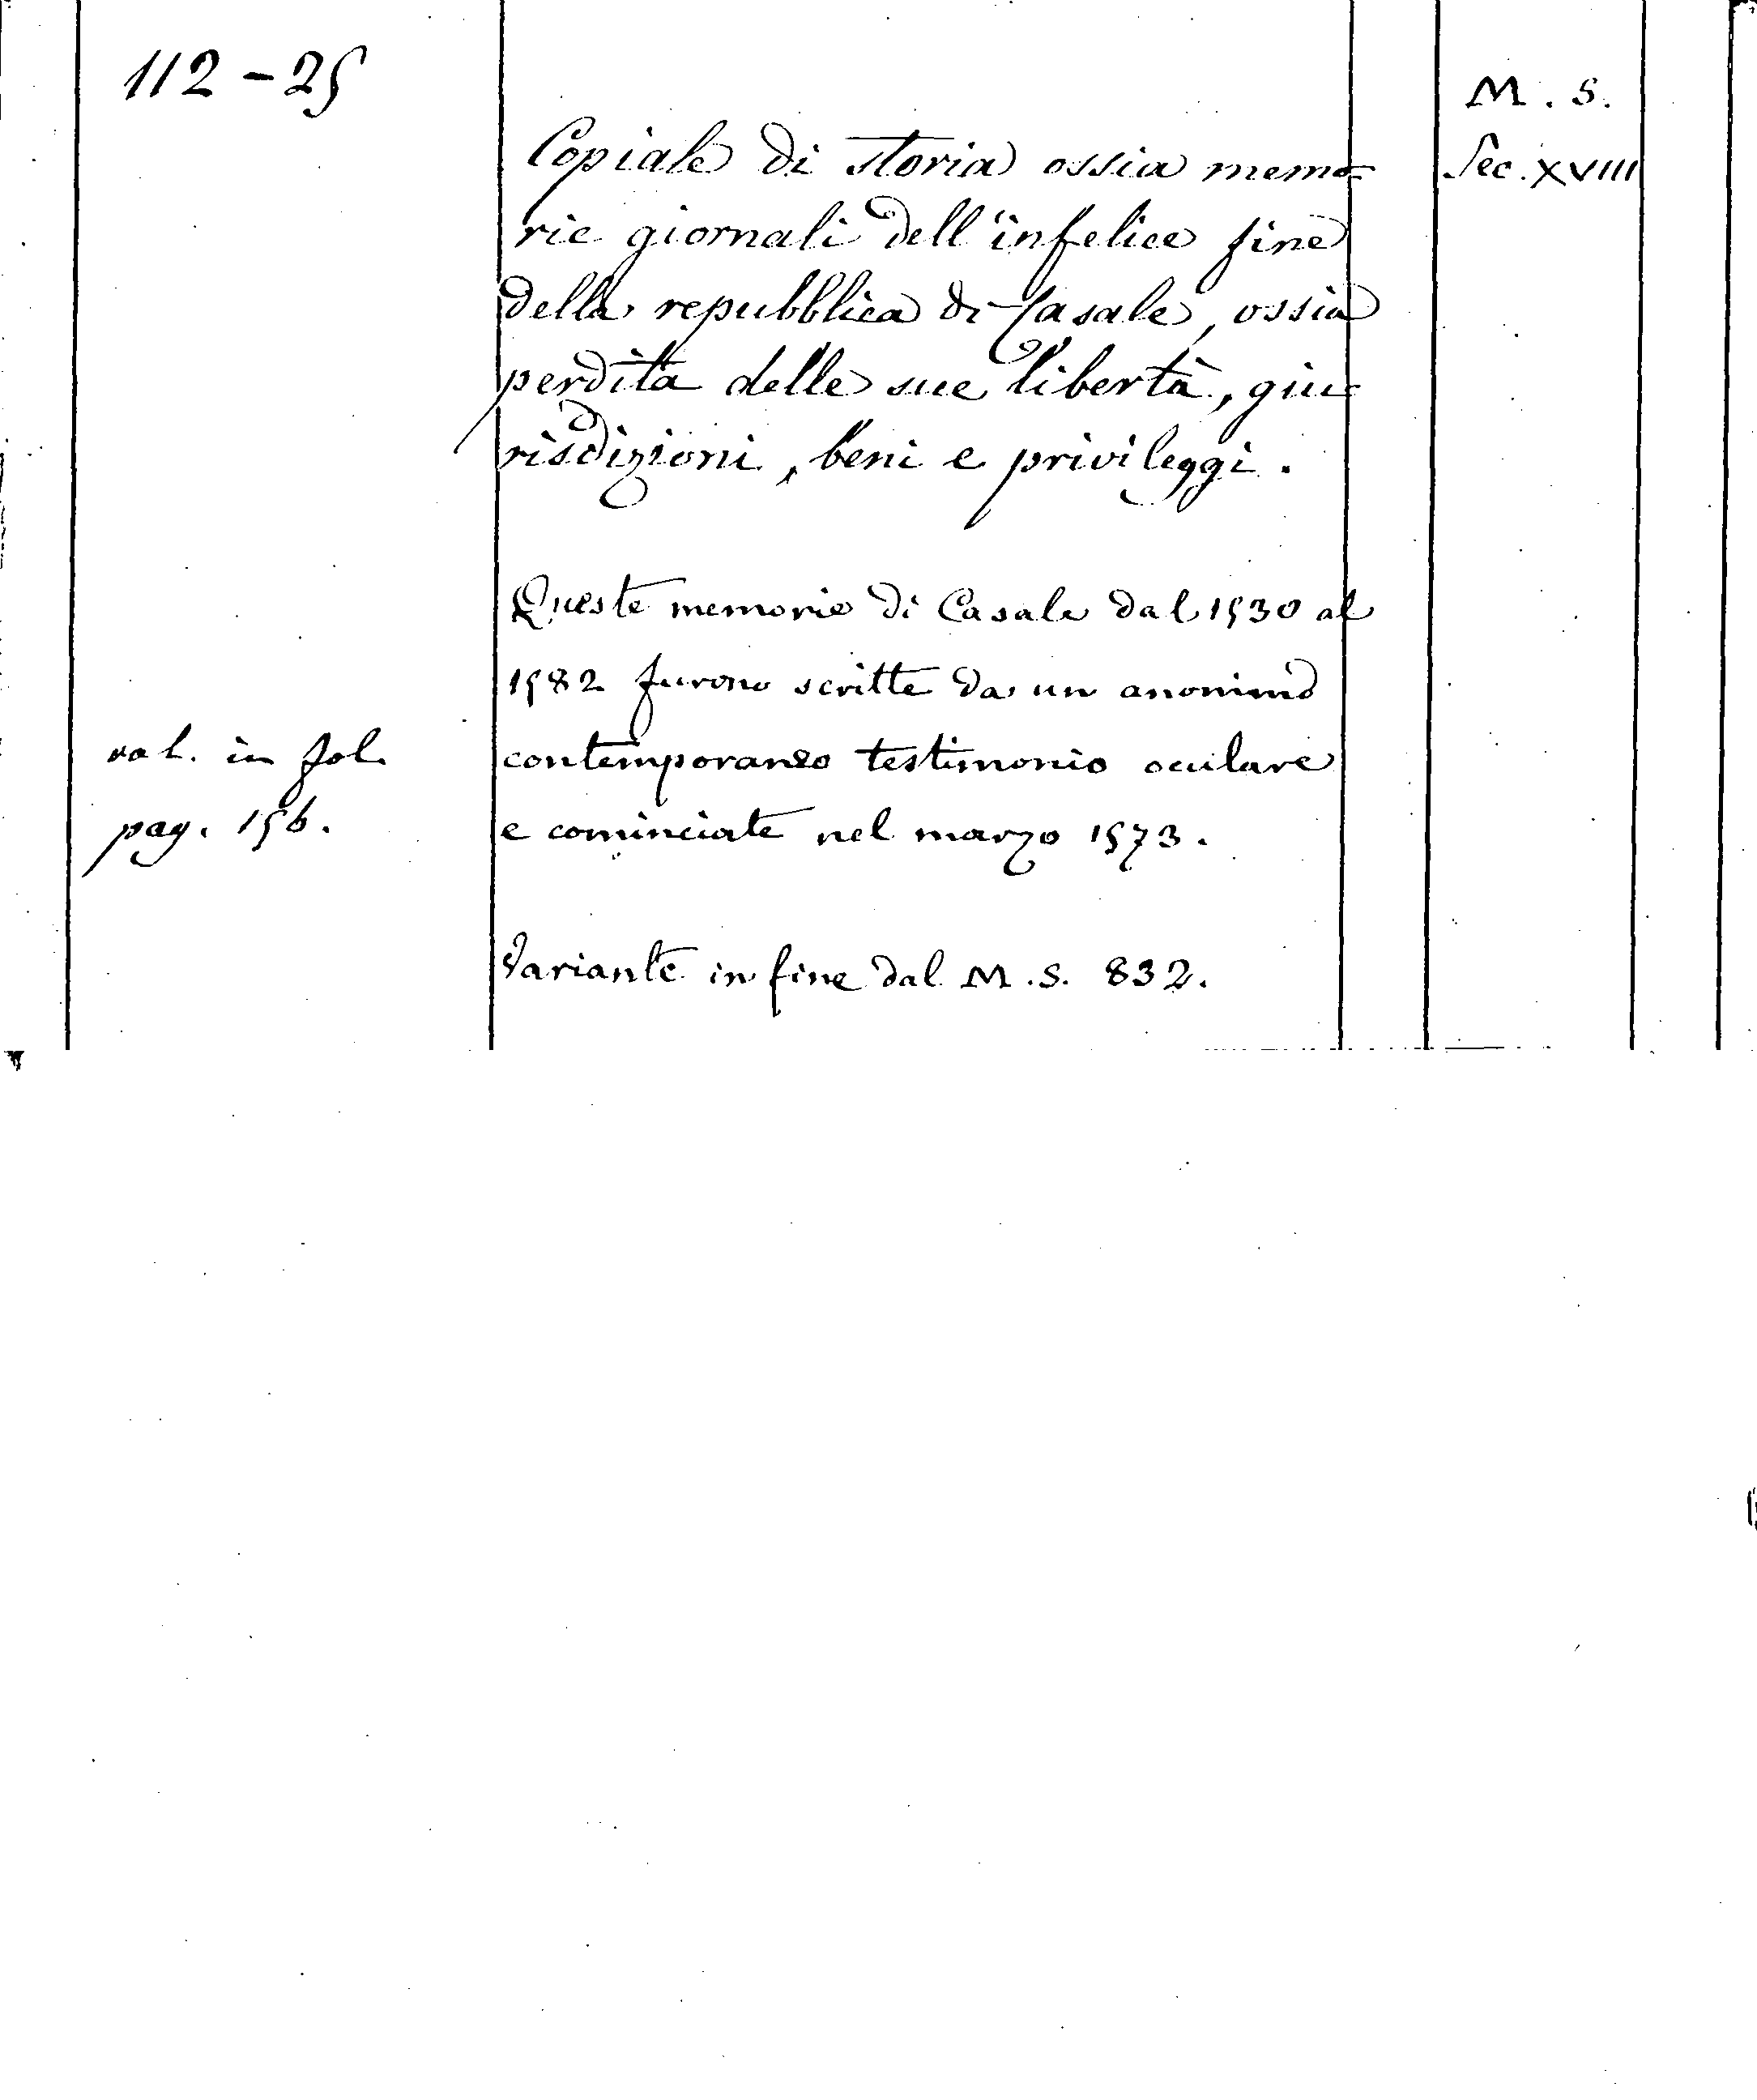 112 - 25
M. S.
Sec. XVIII
Copiale di storia ossia memo=
rie giornali dell'infelice fine
della repubblica di Casale, ossia
perdita delle sue libertà, giu=
risdizioni, beni e privileggi.
Queste memorie di Casale dal 1530 al
1582 furono scritte da un anonimo
contemporaneo testimonio oculare
e cominciate nel marzo 1573.
vol. in fol.
pag. 156.
Variante in fine dal M. S. 832.